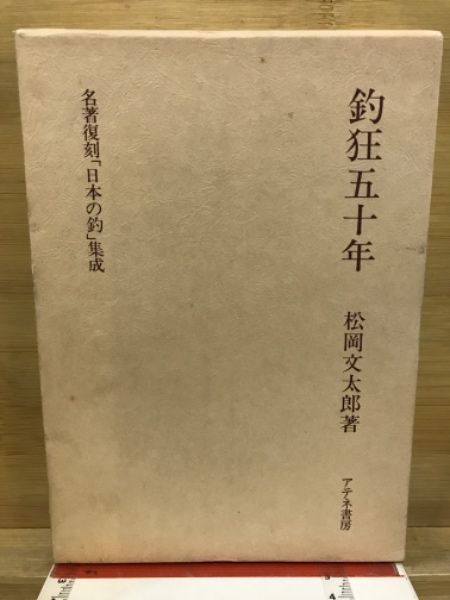 釣狂五十年
松岡文太郎著
アテネ書房
名著復刻「日本の釣」集成
3
4